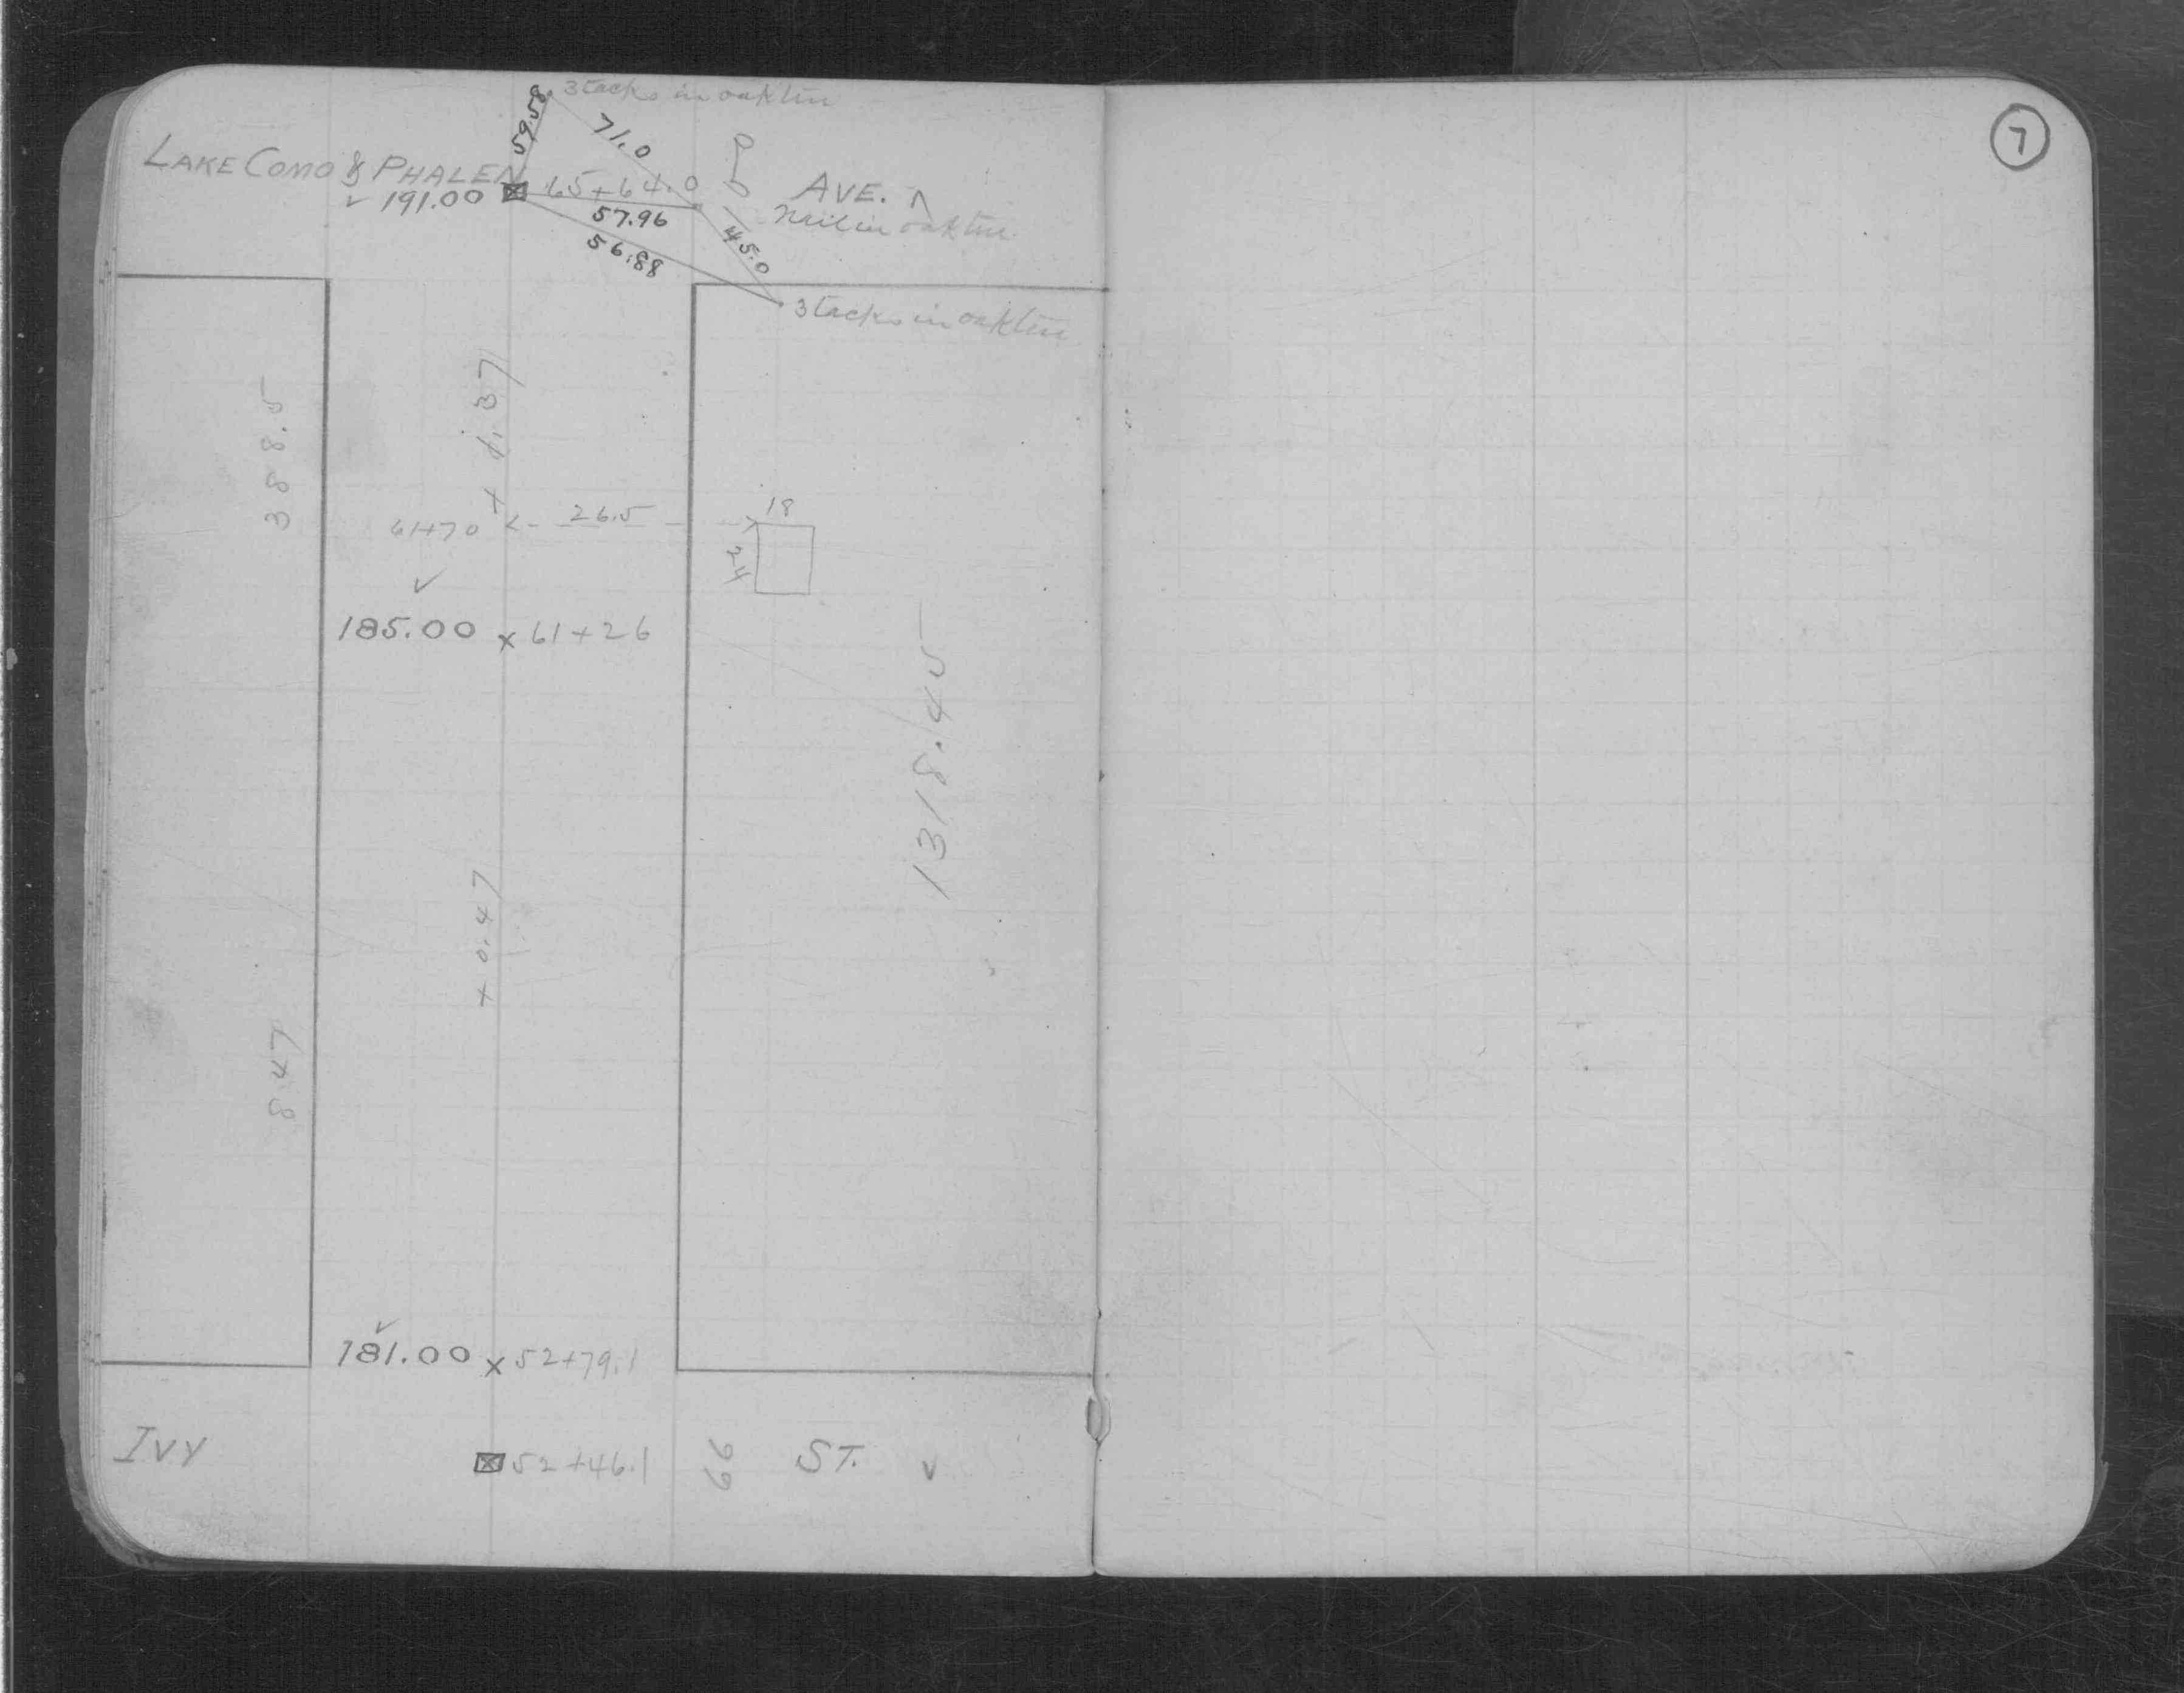 3 tacks in oak tree
59.58
71.0
LAKE COMO & PHALEN AVE.
191.00
65+64.0
57.96
nail in oak tree
56.88
45.0
3 tacks in oak tree
388.5
+ 1.37
61+70
26.5
18
24
185.00 x 61+26
1318.45
+ 0.47
847
181.00 x 52+79.1
IVY ST.
52+46.1
66
7